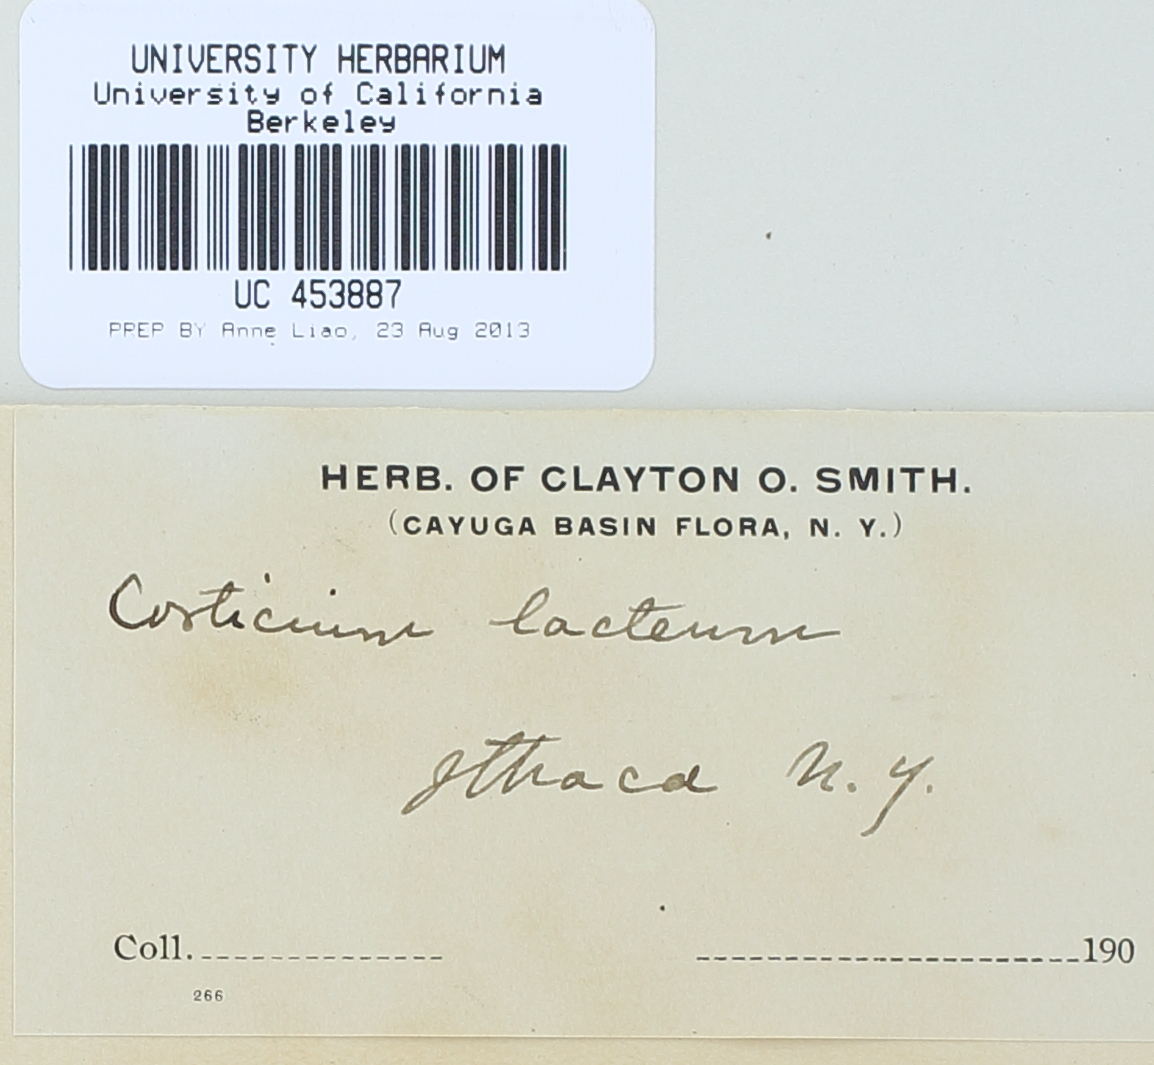 UNIVERSITY HERBARIUM
University of California
Berkeley
UC 453887
PREP BY Anne Liao, 23 Aug 2013
HERB. OF CLAYTON O. SMITH.
(CAYUGA BASIN FLORA, N. Y.)
Corticium lacteum
Ithaca N. Y.
Coll. 190
266